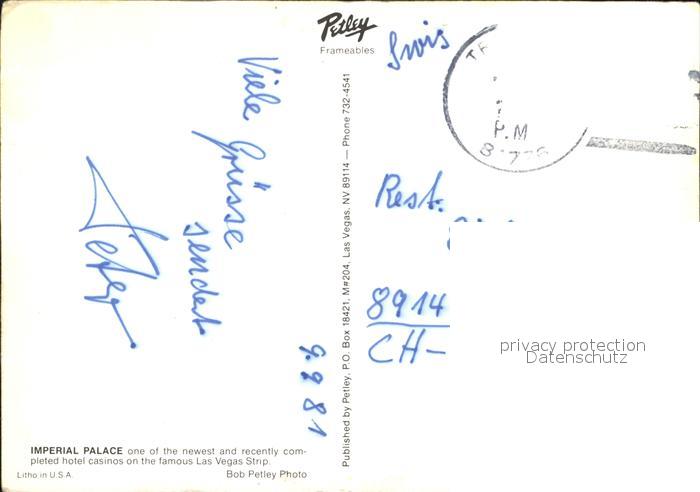 Petley
Frameables
Viele
Grüsse
sendet
Peter
9.2 81
IMPERIAL PALACE one of the newest and recently com-
pleted hotel casinos on the famous Las Vegas Strip.
Litho in U.S.A.
Bob Petley Photo
Published by Petley, P.O. Box 18421, M#204, Las Vegas, NV 89114 — Phone 732-4541
Swis
P.M
Rest.
8914
CH-
privacy protection
Datenschutz